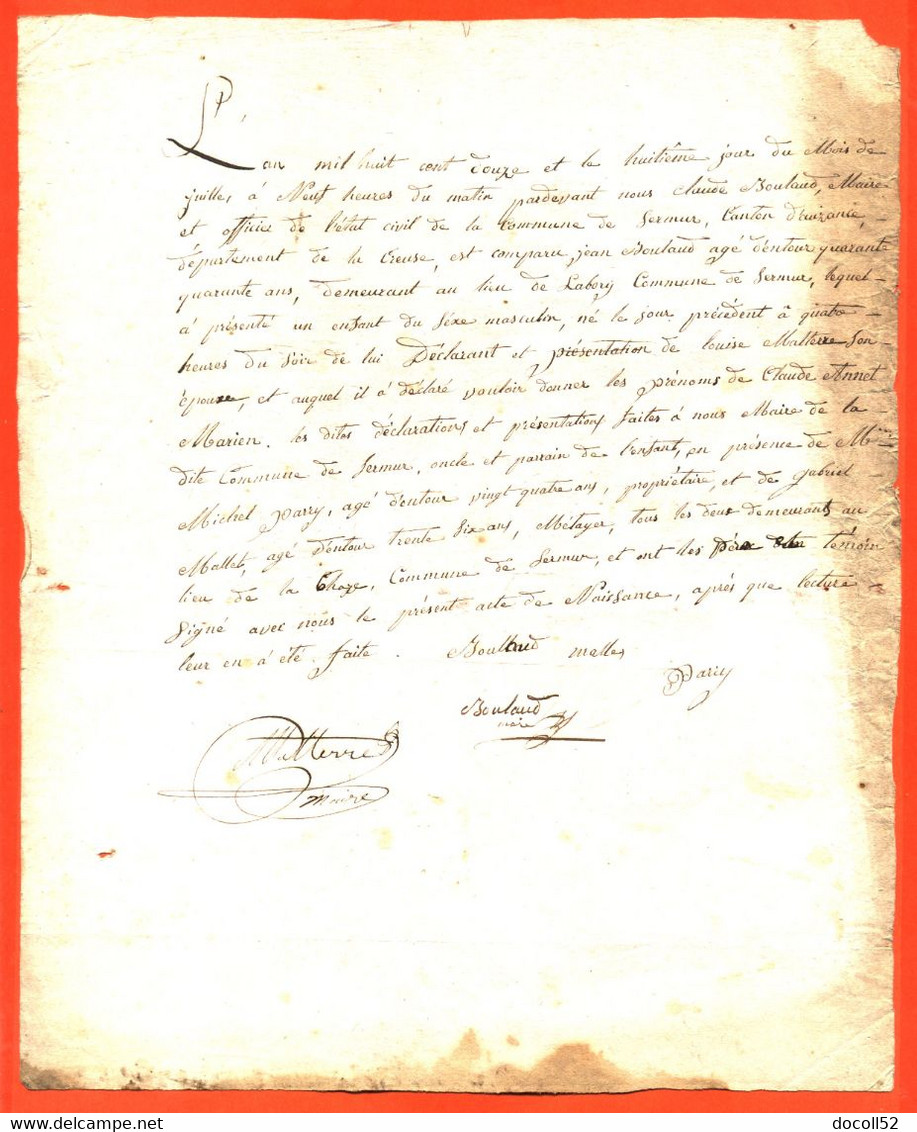 L'an mil huit cent douze et le huitième jour du Mois de
juillet, à Neuf heures du matin pardevant nous Claude Boulaud, Maire
et officier de l'état civil de la Commune de Sermur, Canton d'auzance,
département de la Creuse, est comparu, jean Boulaud agé d'entour quarante
quarante ans, demeurant au lieu de Labory Commune de Sermur, lequel
à présenté un enfant du séxe masculin, né le jour précédent à quatre
heures du soir de lui Déclarant et présentation de louise Malterre Son
épouse, et auquel il à déclaré vouloir donner les prénoms de Claude Annet
Marien. les dites déclarations et présentations faites à nous Maire de la
dite Commune de Sermur, oncle et parrain de l'enfant, en présence de
Michel Parry, agé d'entour vingt quatre ans, propriétaire, et de gabriel
Mallet, agé d'entour trente Six ans, Métayer, tous les deux demeurants au
lieu de la Chaze, Commune de Sermur, et ont les père témoin
Signé avec nous le présent acte de Naissance, aprés que lecture
leur en à été faite. Boullaud mallet
Parry
Boulaud
maire
Malterre
Maire
docoll52